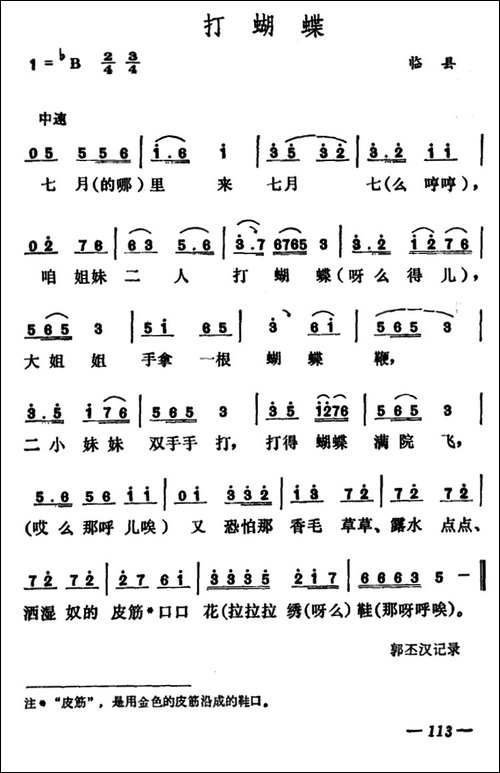 打蝴蝶
1=♭B 2/4 3/4 临县
中速
0 5 5 5 6 | i. 6 i | 3 5 3 2 | 3. 2 i i |
七月(的哪)里 来 七月 七(么 哼哼),
0 2 7 6 | 6 3 5. 6 | 3. 7 6765 3 | 3. 2 i 2 7 6 |
咱 姐妹 二 人 打 蝴 蝶(呀么得儿),
5 6 5 3 | 5 i 6 5 | 3 6 i | 5 6 5 3 |
大姐 姐 手拿 一根 蝴 蝶 鞭,
3. 5 i 7 6 | 5 6 5 3 | 3 5 i276 | 5 6 5 3 |
二小 妹妹 双手手 打, 打得 蝴蝶 满院 飞,
5. 6 5 6 i i | 0 i 3 3 2 | i 3 7 2 | 7 2 7 2 |
(哎么那呼 儿唉) 又 恐怕那 香毛 草草、露水 点点、
7 2 7 2 | 2 7 6 i | 3 3 3 5 2 i 7 | 6 6 6 3 5 – ‖
洒湿 奴的 皮筋*口口 花(拉拉拉 绣(呀么)鞋(那呀呼唉)。
郭丕汉记录
注*“皮筋”,是用金色的皮筋沿成的鞋口。
— 113 —